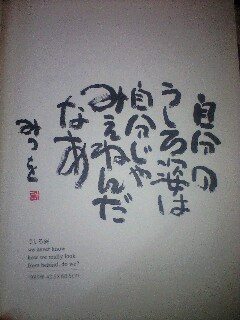 自分の
うしろ姿は
自分じゃ
みえねんだ
なあ
みつを
うしろ姿
we never know
how we really look
from behind, do we?